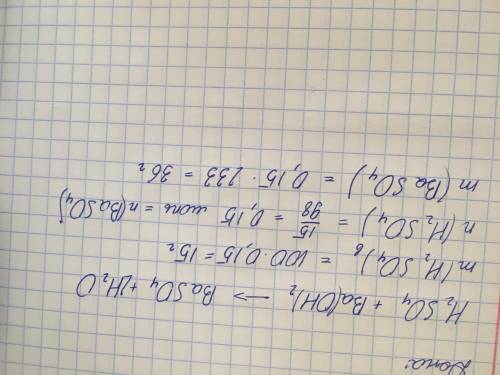 Дано:
H₂SO₄ + Ba(OH)₂ → BaSO₄ + H₂O
m(H₂SO₄)в = 100 · 0,15 = 15г
n(H₂SO₄) = 15/98 = 0,15 моль = n(BaSO₄)
m(BaSO₄) = 0,15 · 233 = 36г